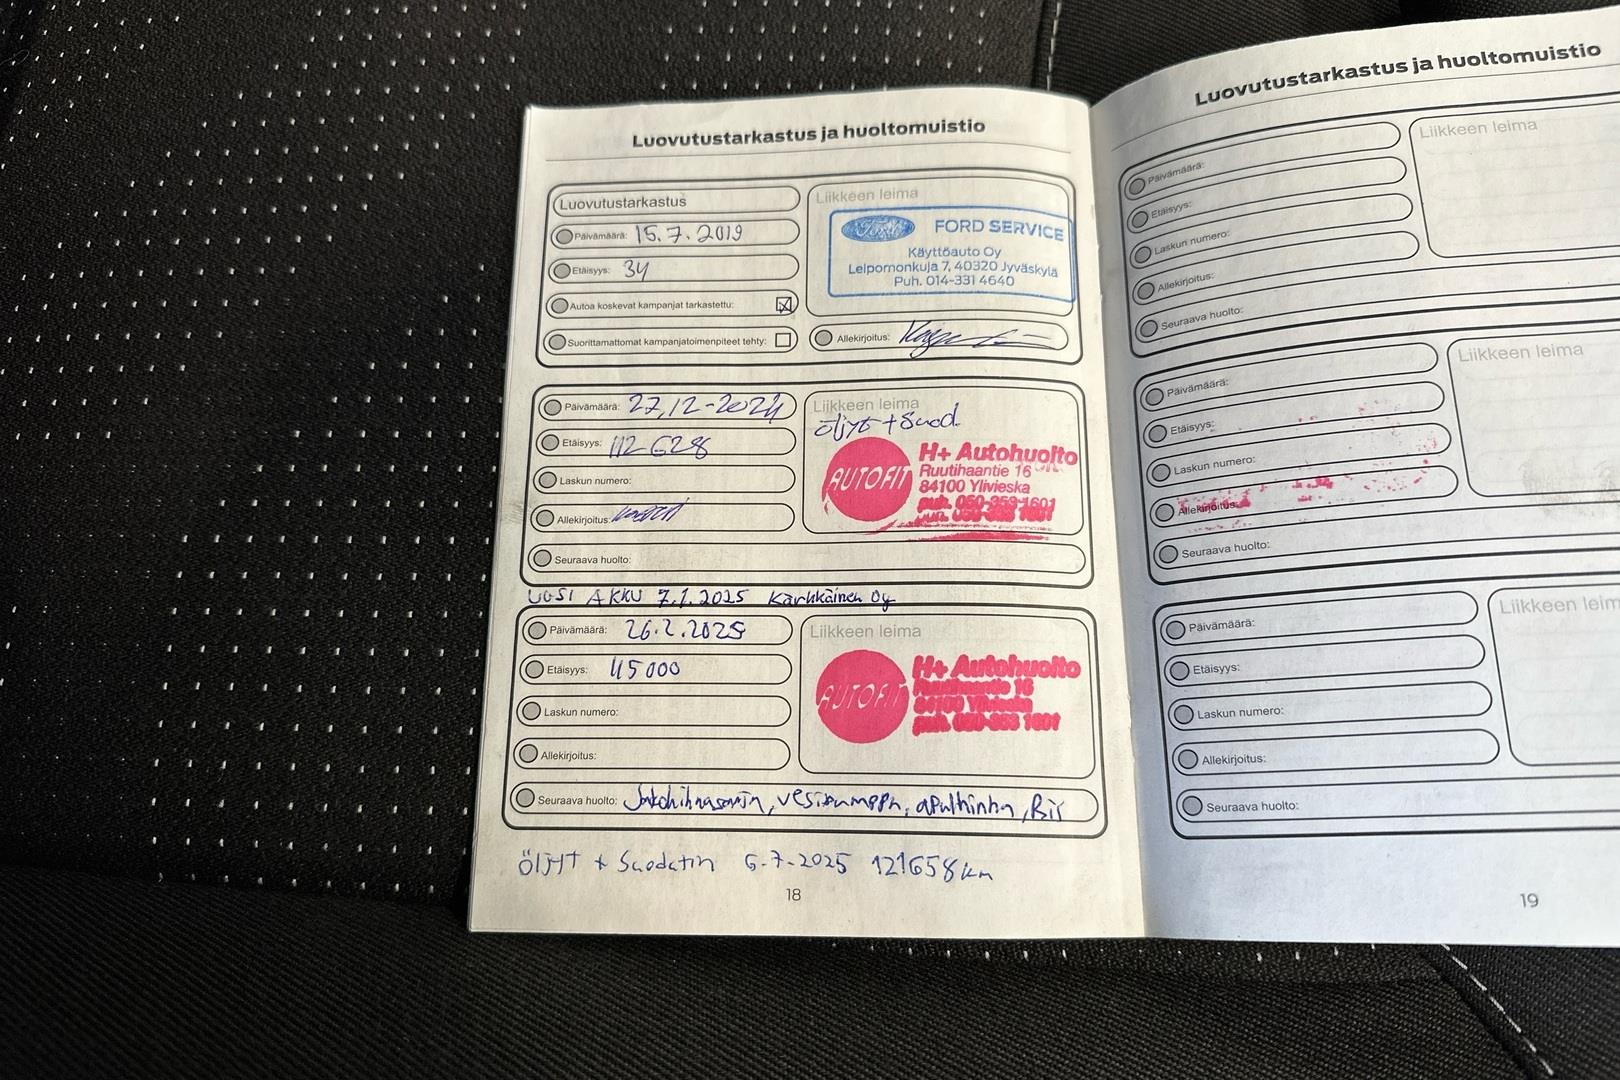 Luovutustarkastus ja huoltomuistio
Luovutustarkastus
Päivämäärä: 15.7.2019
Etäisyys: 34
Autoa koskevat kampanjat tarkastettu:
Suorittamattomat kampanjatoimenpiteet tehty:
Liikkeen leima
Ford FORD SERVICE
Käyttöauto Oy
Leipomonkuja 7, 40320 Jyväskylä
Puh. 014-331 4640
Allekirjoitus:
Päivämäärä: 27.12-2024
Etäisyys: 112 628
Laskun numero:
Allekirjoitus:
Liikkeen leima
öljyt + Suod.
AUTOFIT
H+ Autohuolto
Ruutihaantie 16
84100 Ylivieska
Seuraava huolto:
UUSI AKKU 7.1.2025 Karhkäinen Oy
Päivämäärä: 26.2.2025
Etäisyys: 115000
Laskun numero:
Allekirjoitus:
Liikkeen leima
AUTOFIT
H+ Autohuolto
Ruutihaantie 16
84100 Ylivieska
Seuraava huolto: Jakohihnasarja, vesipumppu, apulhihna,
Öljyt + Suodatin 6-7-2025 121658km
18
Luovutustarkastus ja huoltomuistio
Päivämäärä:
Etäisyys:
Laskun numero:
Allekirjoitus:
Seuraava huolto:
Liikkeen leima
Päivämäärä:
Etäisyys:
Laskun numero:
Allekirjoitus:
Seuraava huolto:
Liikkeen leima
Päivämäärä:
Etäisyys:
Laskun numero:
Allekirjoitus:
Seuraava huolto:
Liikkeen leim
19